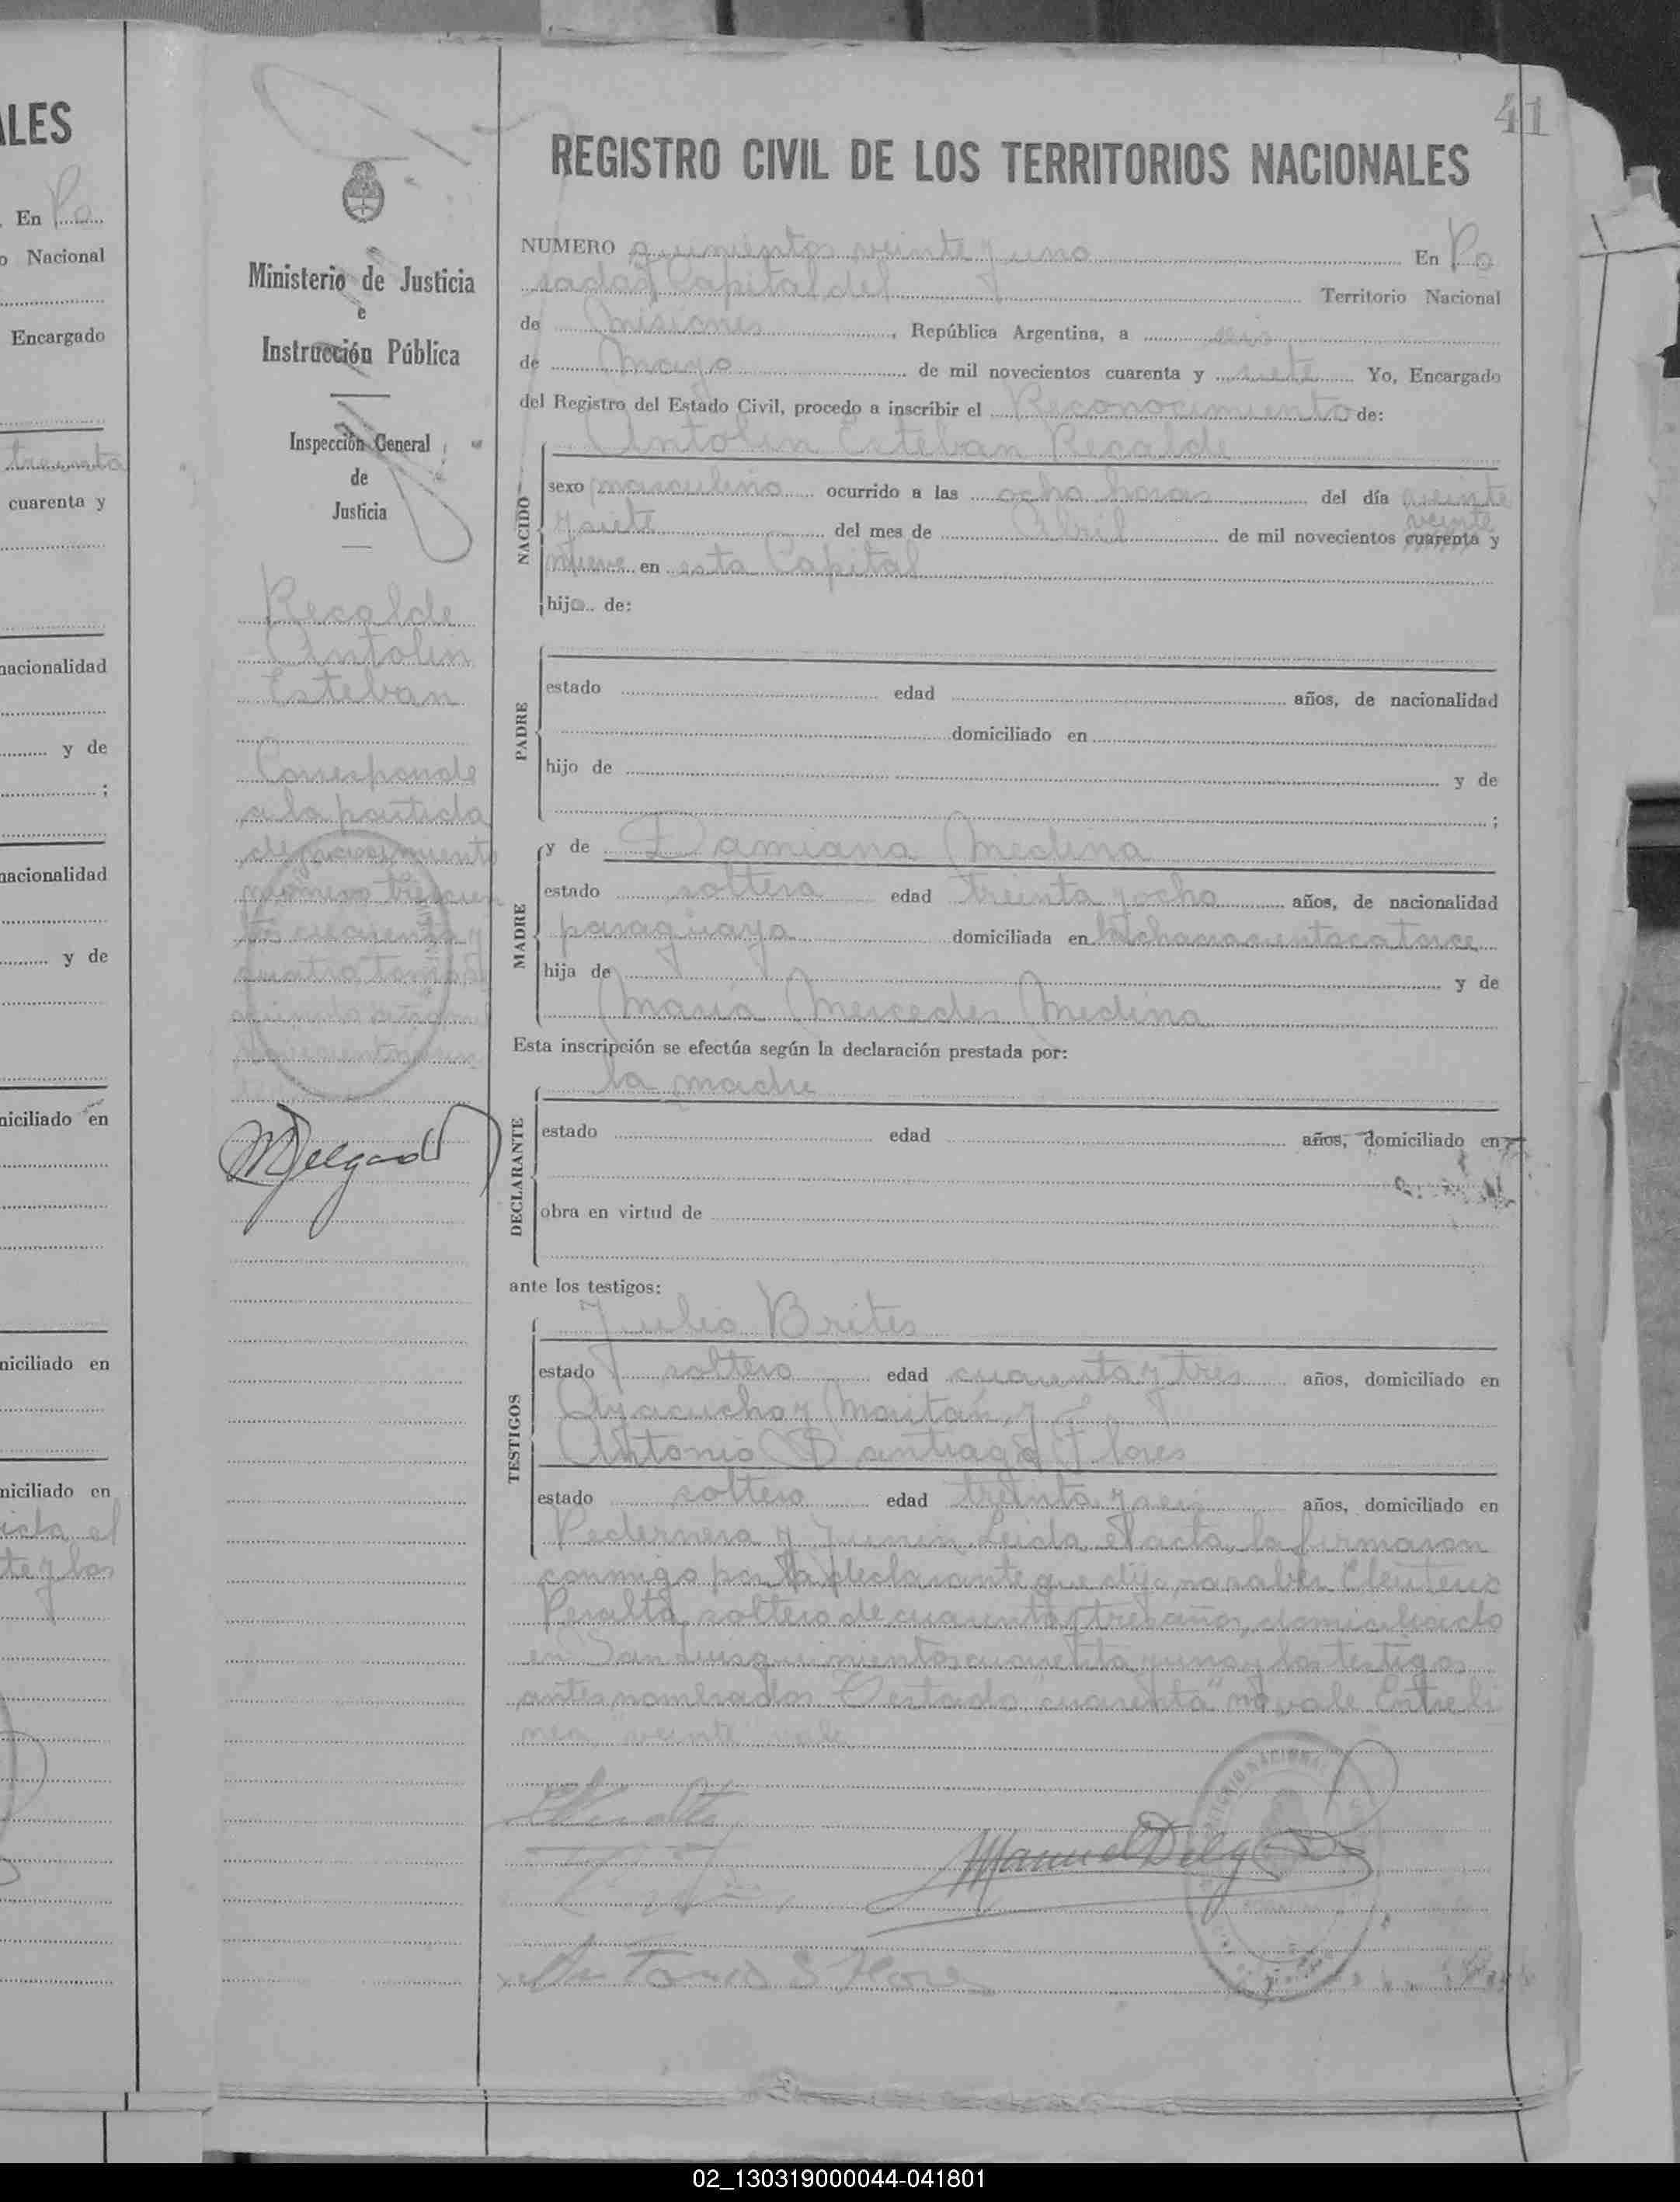 ALES
. En Po
o Nacional
Encargado
treinta
cuarenta y
nacionalidad
y de
;
nacionalidad
y de
miciliado en
niciliado en
niciliado en
41
Ministerio de Justicia
e
Instrucción Pública
Inspección General
de
Justicia
Recalde
Antolin
Esteban
Corresponde
a la partida
de nacimiento
número trescien
tos cuarenta y
cuatro tomo
MDelgado
REGISTRO CIVIL DE LOS TERRITORIOS NACIONALES
NUMERO quinientos veinte y uno En Po
sadas Capital del Territorio Nacional
de Misiones, República Argentina, a seis
de Mayo de mil novecientos cuarenta y siete Yo, Encargado
del Registro del Estado Civil, procedo a inscribir el Reconocimiento de:
Antolin Esteban Recalde
NACIDO
sexo masculino ocurrido a las ocho horas del día veinte
veinte
y siete del mes de Abril de mil novecientos cuarenta y
nueve en esta Capital
hijo de:
PADRE
estado edad años, de nacionalidad
domiciliado en
hijo de y de
;
MADRE
y de Damiana Medina
estado soltera edad treinta y ocho años, de nacionalidad
paraguaya domiciliada en
hija de y de
Maria Mercedes Medina
Esta inscripción se efectúa según la declaración prestada por:
DECLARANTE
la madre
estado edad años, domiciliado en
obra en virtud de
ante los testigos:
TESTIGOS
Julio Brites
estado soltero edad cuarenta y tres años, domiciliado en
Ayacucho y Maitán, y
Antonio Santiago Flores
estado soltero edad treinta y seis años, domiciliado en
Pedernera y Junin. Leida el acta, la firmaron
conmigo por la declarante que dijo no saber Eleuterio
Peralta, soltero de cuarenta y tres años, domiciliado
en San Luis quinientos cuarenta y uno y los testigos
antes nombrados Testado "cuarenta" no vale Entreli
nea "veinte" vale
EPeralta
Manuel Delgado
Antonio S Flores
02_130319000044-041801